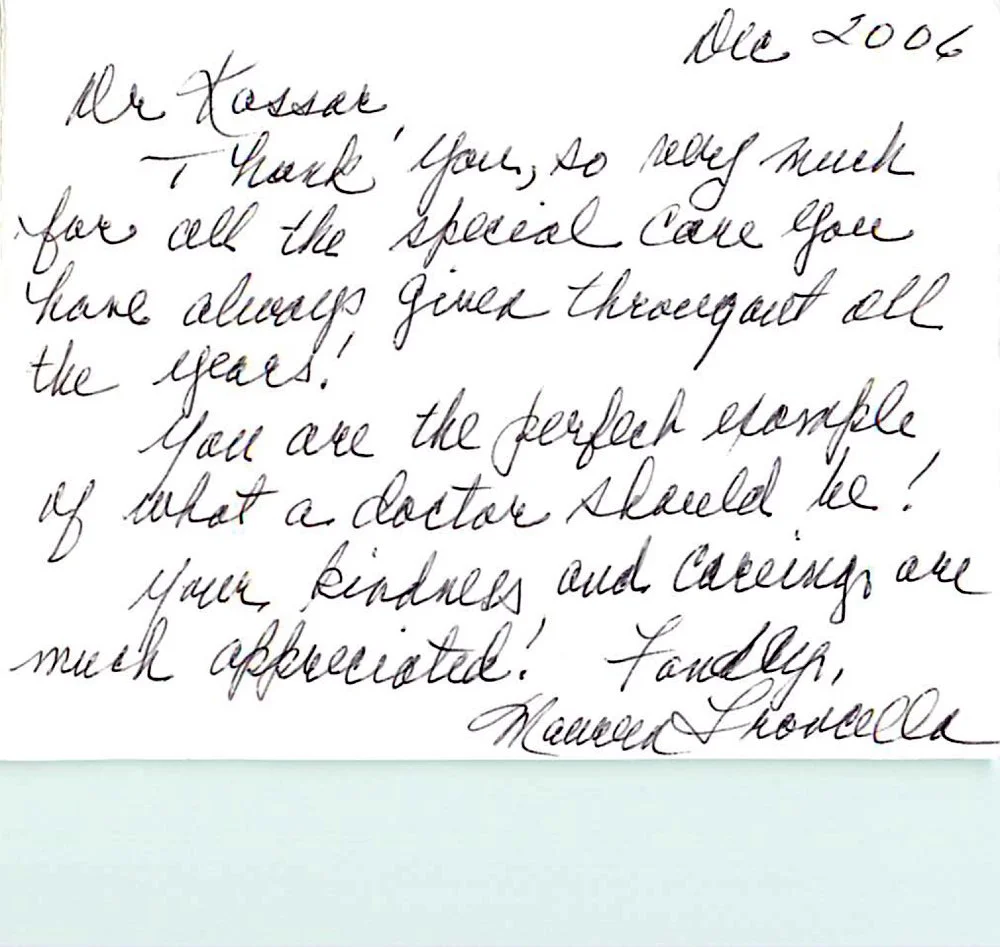 Dec 2006
Dr Kassar,
Thank you, so very much
for all the special care you
have always given througout all
the years!
You are the perfect example
of what a doctor should be!
Your kindness and careing are
much appreciated! Fondly,
Maureen